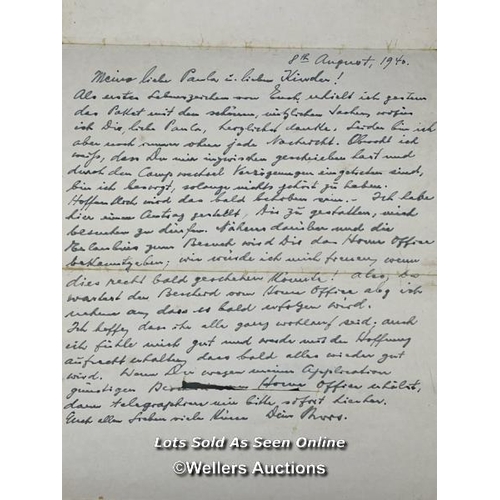 8th August, 1940.
Meine liebe Paula u. lieben Kinder!
Als erstes Lebenszeichen von Euch erhielt ich gestern
das Paket mit den schönen, nützlichen Sachen, wofür
ich Dir, liebe Paula, herzlichst danke. Leider bin ich
aber noch immer ohne jede Nachricht. Obwohl ich
weiss, dass Du mir inzwischen geschrieben hast und
durch den Campwechsel Verzögerungen eingetreten sind,
bin ich besorgt, solange nichts gehört zu haben.
Hoffentlich wird das bald behoben sein. - Ich habe
hier einen Antrag gestellt, Dir zu gestatten, mich
besuchen zu dürfen. Näheres darüber und die
Erlaubnis zum Besuch wird Dir das Home Office
bekanntgeben, wir würde ich mich freuen, wenn
dies recht bald geschehen könnte! Also, Du
wartest den Bescheid vom Home Office ab, ich
nehme an, dass es bald erfolgen wird.
Ich hoffe, dass ihr alle ganz wohlauf seid; auch
ich fühle mich gut und werde mir die Hoffnung
aufrecht erhalten, dass bald alles wieder gut
wird. Wenn Du wegen meiner Application
günstigen Home Office erhälst,
dann telegraphiere mir bitte sofort hierher.
Euch allen Lieben viele Dein
Lots Sold As Seen Online
©Wellers Auctions